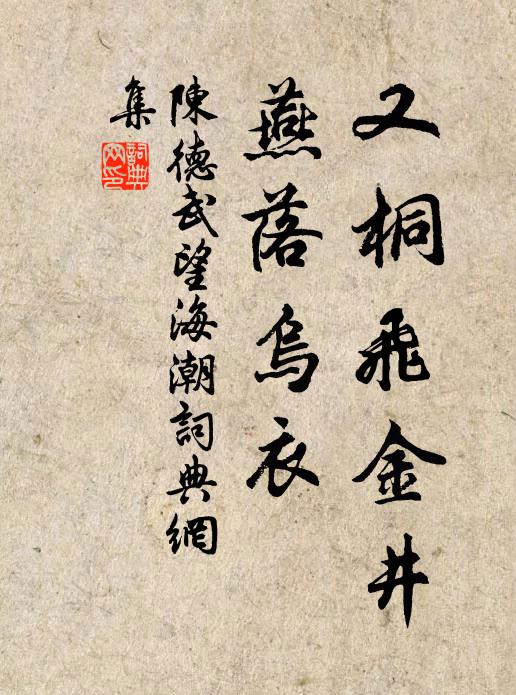 又桐飛金井
燕落烏衣
陳德武望海潮詞典網
集
詞典網印